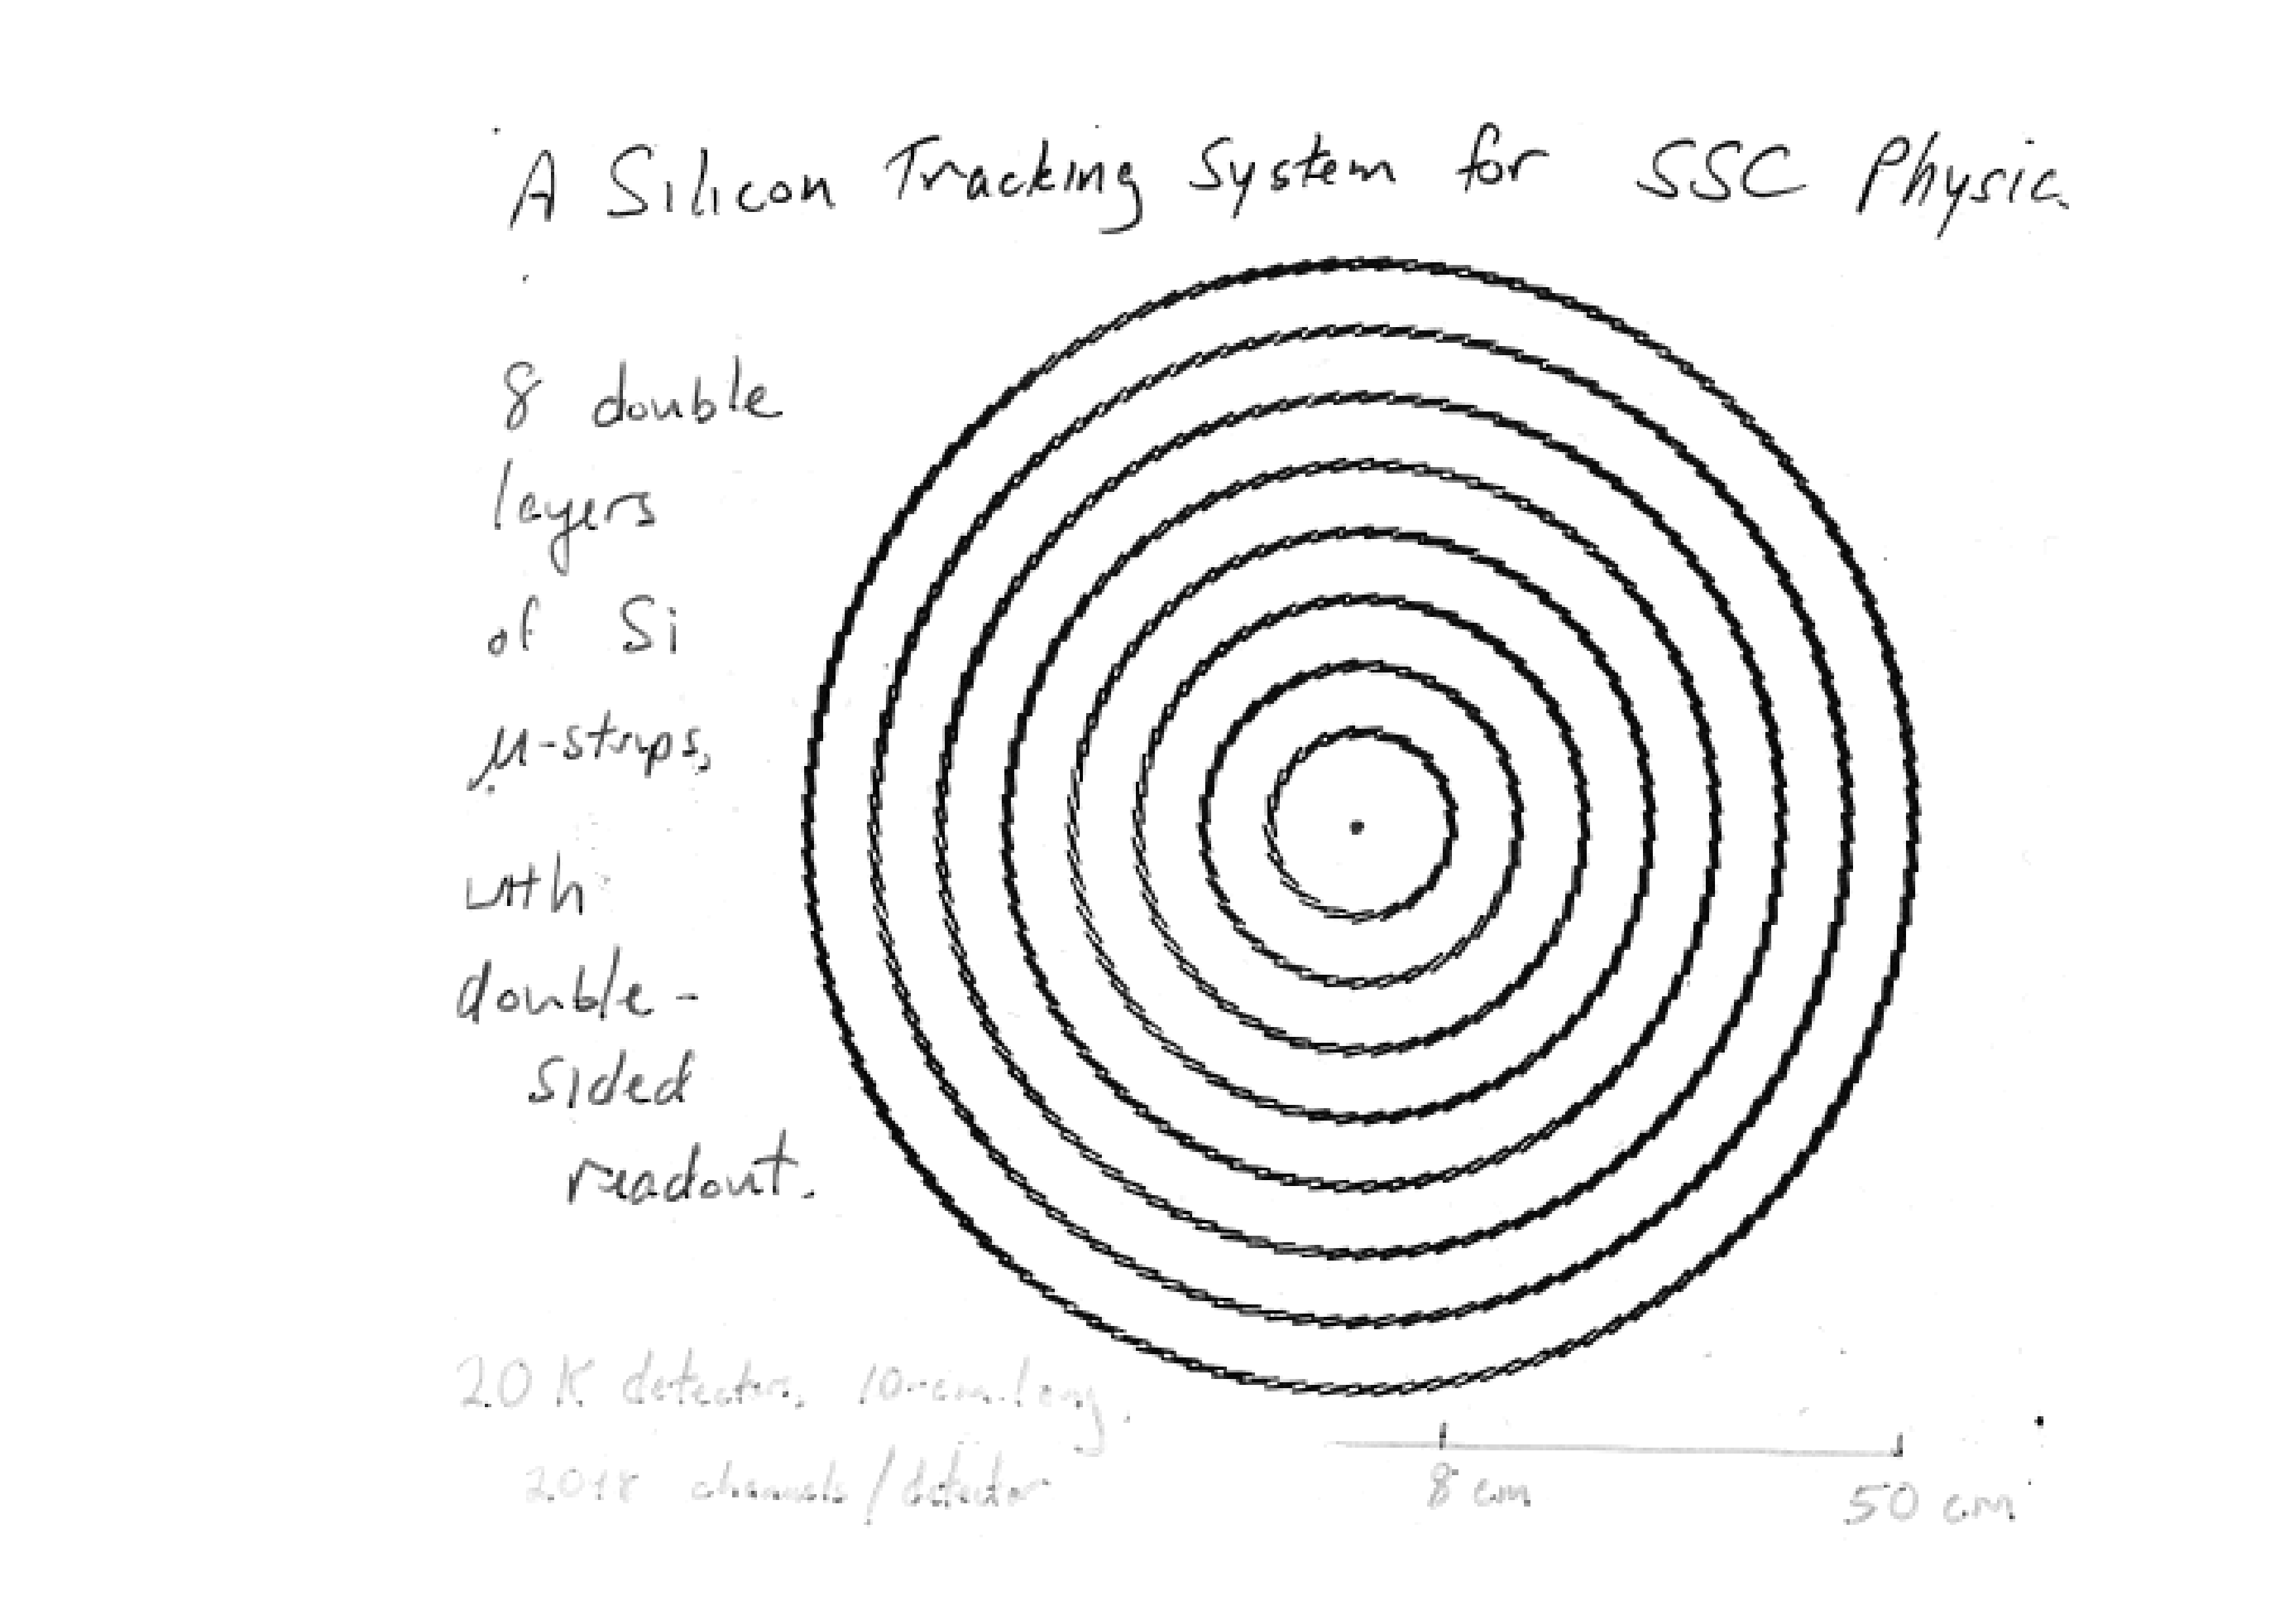 A Silicon Tracking System for SSC Physic
8 double
layers
of Si
μ-strips,
with
double-
sided
readout.
20 K detectors, 10-cm long,
channels / detector
8 cm
50 cm